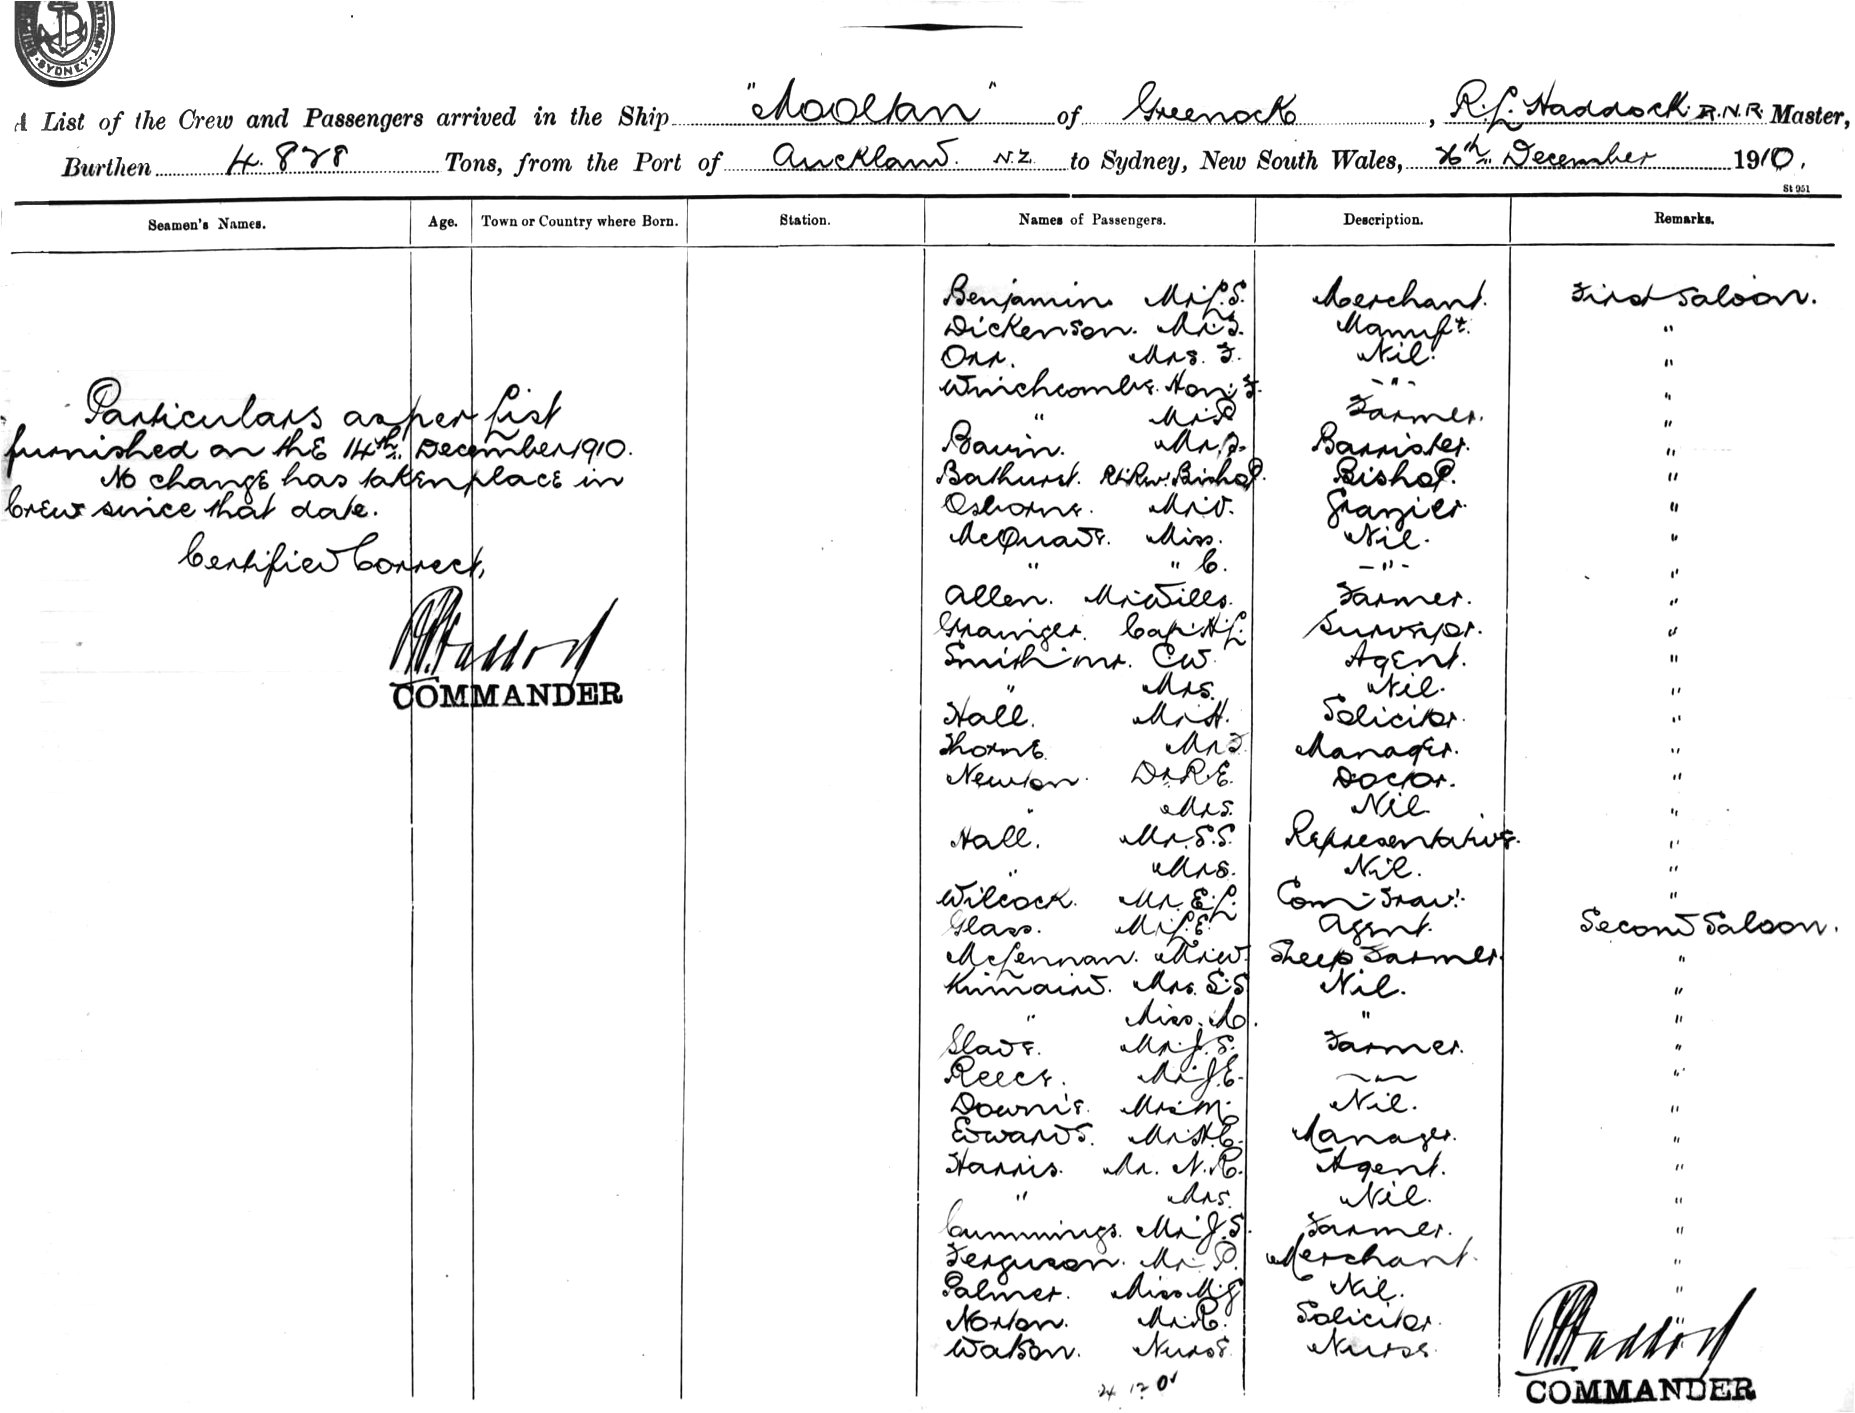 SYDNEY
A List of the Crew and Passengers arrived in the Ship "Mooltan" of Greenock, R. L. Haddock. R.N.R. Master,
Burthen 4.828 Tons, from the Port of Auckland. N.Z. to Sydney, New South Wales, 26th December 1910.
St 951
Seamen's Names. Age. Town or Country where Born. Station. Names of Passengers. Description. Remarks.
Benjamin Mr L.S. Merchant. First Saloon.
Dickenson. Mr. J. Manuft. "
Orr. Mrs. F. Nil. "
Winchcombe. Hon. F. -"- "
" Mr R Farmer. "
Bavin. Mr. Barrister. "
Bathurst. Rt. Rev. Bishop. Bishop. "
Osborne. Mr. V. Grazier. "
McQuade. Miss. Nil. "
" " C. -"- "
Allen. Mr Wills. Farmer. "
Grainger. Capt H. L. Surveyor. "
Smith Mr. C W. Agent. "
" Mrs. Nil. "
Hall. Mr H. Solicitor. "
Thorne Mr F. Manager. "
Newton. Dr R.E. Doctor. "
" Mrs. Nil. "
Hall. Mr. S.S. Representative. "
" Mrs. Nil. "
Wilcock. Mr. E. L. Com-Trav. "
Glass. Mr L.E. Agent. Second Saloon.
McLennan. Mr W. Sheep Farmer. "
Kinnaird. Mrs. S.S Nil. "
" Miss. M. " "
Slade. Mr. J. S. Farmer. "
Reece. Mr J.E. -"- "
Downie. Mrs M. Nil. "
Edwards. Mr H.C. Manager. "
Harris. Mr. N. R. Agent. "
" Mrs. Nil. "
Cummings. Mr J. S. Farmer. "
Ferguson. Mr. P. Merchant. "
Palmer. Miss M J Nil. "
Norton. Mr. R. Solicitor.
Watson. Nurse Nurse.
Particulars as per List
furnished on the 14th. December 1910.
No change has taken place in
Crew since that date.
Certified Correct,
R L Haddock
COMMANDER
R L Haddock
COMMANDER